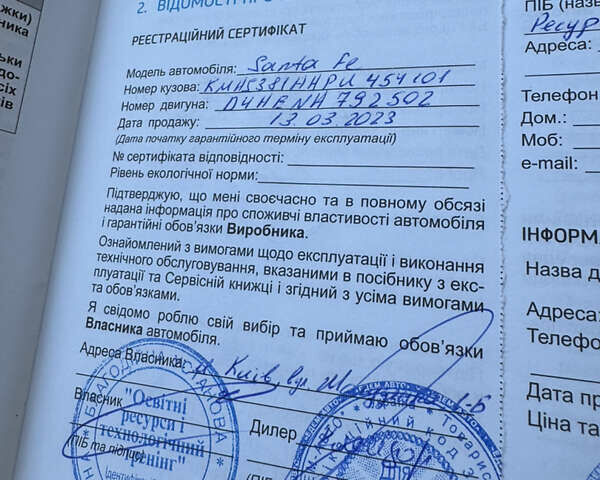 2. ВІДОМОСТІ ПРО
РЕЄСТРАЦІЙНИЙ СЕРТИФІКАТ
Модель автомобіля: Santa Fe
Номер кузова: KMHS381HHPU454101
Номер двигуна: D4HENA792502
Дата продажу: 13.03.2023
(Дата початку гарантійного терміну експлуатації)
№ сертифіката відповідності:
Рівень екологічної норми:
Підтверджую, що мені своєчасно та в повному обсязі
надана інформація про споживчі властивості автомобіля
і гарантійні обов'язки Виробника.
Ознайомлений з вимогами щодо експлуатації і виконання
технічного обслуговування, вказаними в посібнику з екс-
плуатації та Сервісній книжці і згідний з усіма вимогами
та обов'язками.
Я свідомо роблю свій вибір та приймаю обов'язки
Власника автомобіля.
Адреса Власника: м. Київ, вул.
Власник
Дилер
(ПІБ та підпис)
(ПІБ
БЛАГОДІЙНА УСТАНОВА
"Освітні
ресурси і
технологічний
тренінг"
Товарис
код
жки)
ника
ьки
до-
сіх
ків
ПІБ (на
Ресур
Адреса:
Телефон
Дом.:
Моб:
e-mail:
ІНФОРМА
Назва д
Адреса:
Телефо
Дата пр
Ціна та